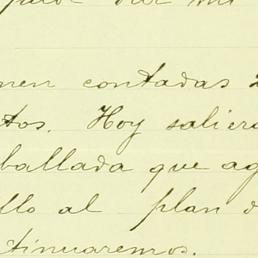 nen contadas
tos. Hoy saliero
ballada que ag
llo al plan d
tinuaremos.